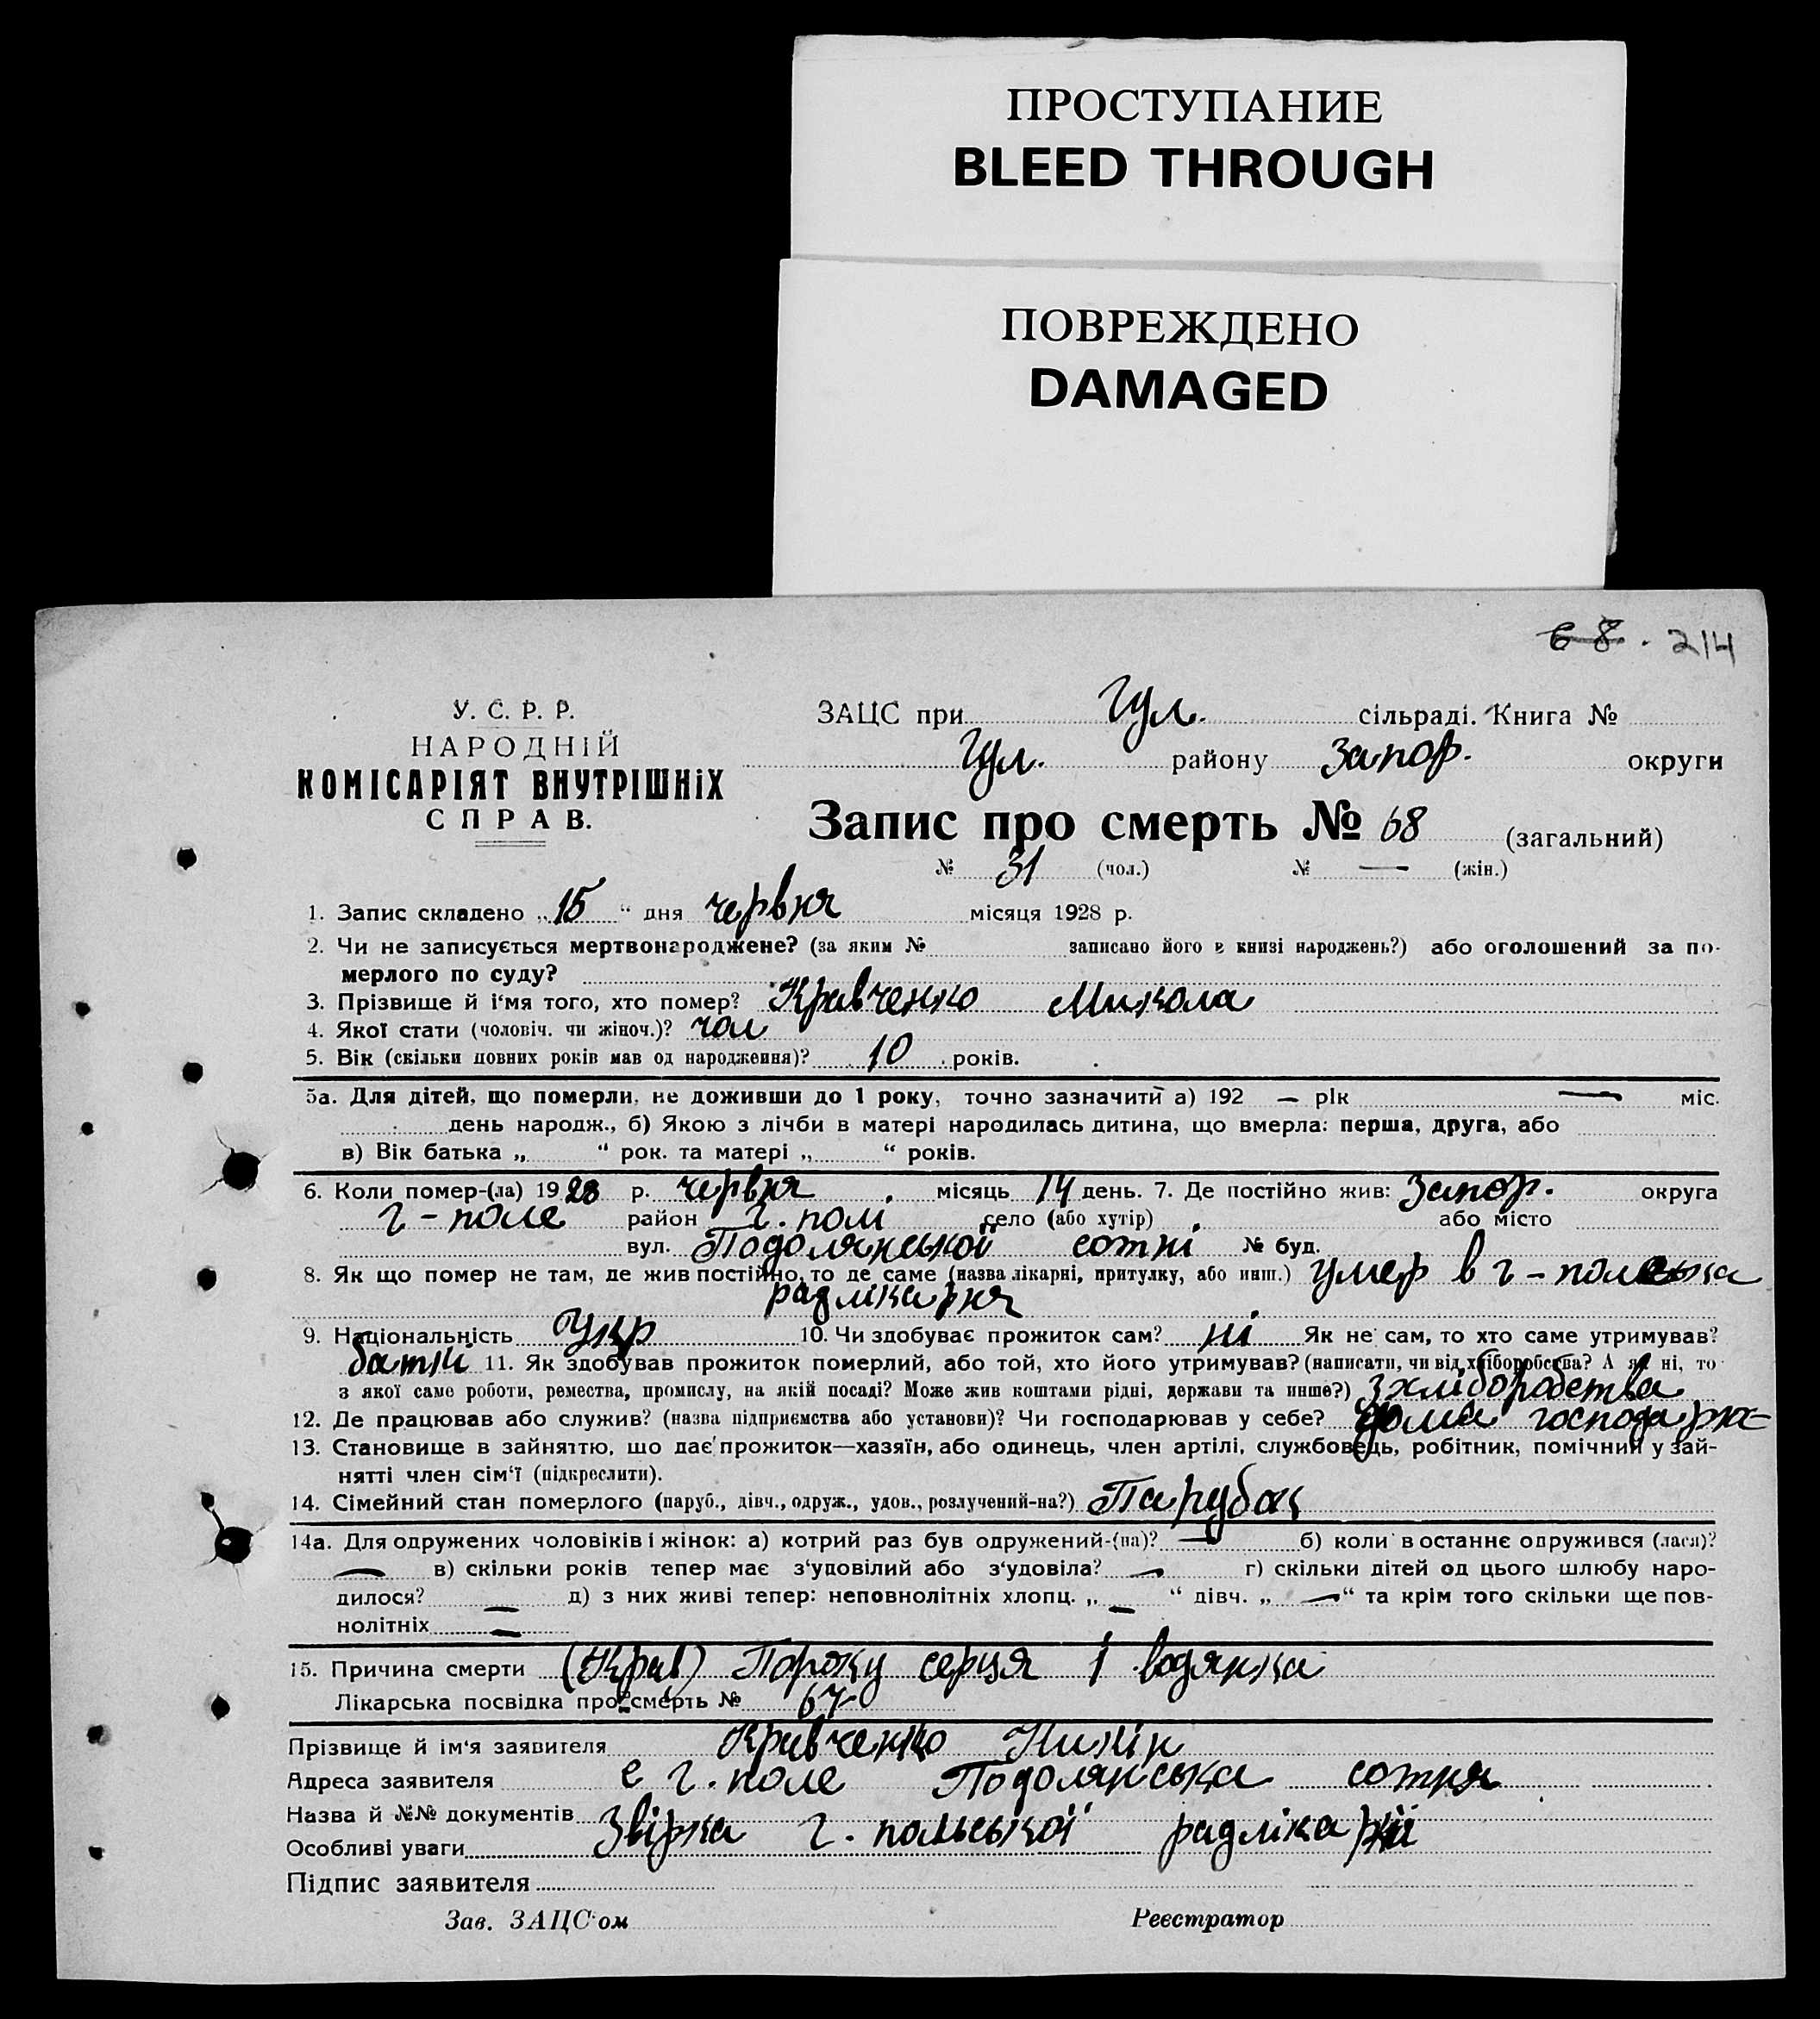 ПРОСТУПАНИЕ
BLEED THROUGH
ПОВРЕЖДЕНО
DAMAGED
6 8. 214
У. С. Р. Р.
НАРОДНІЙ
КОМІСАРІЯТ ВНУТРІШНІХ
СПРАВ.
ЗАЦС при Гул. сільраді. Книга №
Гул. району Запор. округи
Запис про смерть № 68 (загальний)
№ 31 (чол.) № — (жін.)
1. Запис складено „15“ дня червня місяця 1928 р.
2. Чи не записується мертвонароджене? (за яким № записано його в книзі народжень?) або оголошений за по-
мерлого по суду?
3. Прізвище й і‘мя того, хто помер? Кравченко Микола
4. Якої стати (чоловіч. чи жіноч.)? чол
5. Вік (скільки повних років мав од народження)? 10 років.
5а. Для дітей, що померли, не доживши до 1 року, точно зазначити а) 192 — рік — міс.
день народж., б) Якою з лічби в матері народилась дитина, що вмерла: перша, друга, або
в) Вік батька „ “ рок. та матері „ “ років.
6. Коли помер-(ла) 1928 р. червня місяць 14 день. 7. Де постійно жив: Запор. округа
г-поле район г. полі село (або хутір) або місто
вул. Подолянської сотні № буд.
8. Як що помер не там, де жив постійно, то де саме (назва лікарні, притулку, або инш.) умер в г-польська
радлікарня
9. Національність Укр 10. Чи здобуває прожиток сам? ні Як не сам, то хто саме утримував?
батьки 11. Як здобував прожиток померлий, або той, хто його утримував? (написати, чи від хліборобства? А як ні, то
з якої саме роботи, ремества, промислу, на якій посаді? Може жив коштами рідні, держави та инше?) з хліборобства
12. Де працював або служив? (назва підприємства або установи)? Чи господарював у себе? дома господарює
13. Становище в зайняттю, що дає прожиток—хазяїн, або одинець, член артілі, службовець, робітник, помічний у зай-
нятті член сім‘ї (підкреслити).
14. Сімейний стан померлого (паруб., дівч., одруж., удов., розлучений-на?) Парубок
14а. Для одружених чоловіків і жінок: а) котрий раз був одружений-(на)? — б) коли в останнє одружився (лася)?
— в) скільки років тепер має з‘удовілий або з‘удовіла? — г) скільки дітей од цього шлюбу наро-
дилося? — д) з них живі тепер: неповнолітніх хлопц. „ — “ дівч. „ — “ та крім того скільки ще пов-
нолітніх —
15. Причина смерти Пороку серця і водянка
Лікарська посвідка про смерть № 67
Прізвище й ім‘я заявителя Кравченко
Адреса заявителя с г. поле Подолянська сотня
Назва й №№ документів Звірка г. польської радлікарні
Особливі уваги
Підпис заявителя
Зав. ЗАЦС‘ом Реєстратор